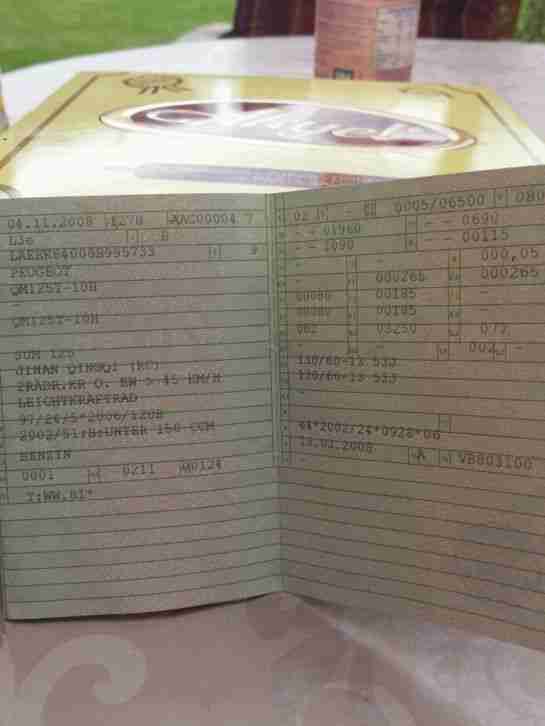 04.11.2008 1278 AAC00004 7
L3e - B
LAEEK640088995733
PEUGEOT
QM125T-10H
QM125T-10H
SUM 125
JINAN QINGQI (RC)
2RÄDR.KR O. BW > 45 KM/H
LEICHTKRAFTRAD
97/24/5*2006/120B
2002/51;B;UNTER 150 CCM
BENZIN
0001 0211
T:WW.BI*
02 - 0005/06500 080
- - 01960 - - 0690
- - 1090 - - 00115
- - 000,05
- 000265 000265
00080 00185 -
00080 00185 -
082 03250 077
- - 002 -
130/60-13 53J
130/60-13 53J
-
-
e4*2002/24*0928*06
13.03.2008 A VB803100
-